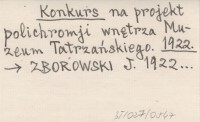 Konkurs na projekt
polichromji wnętrza Mu-
zeum Tatrzańskiego. 1922.
→ ZBOROWSKI J. 1922...